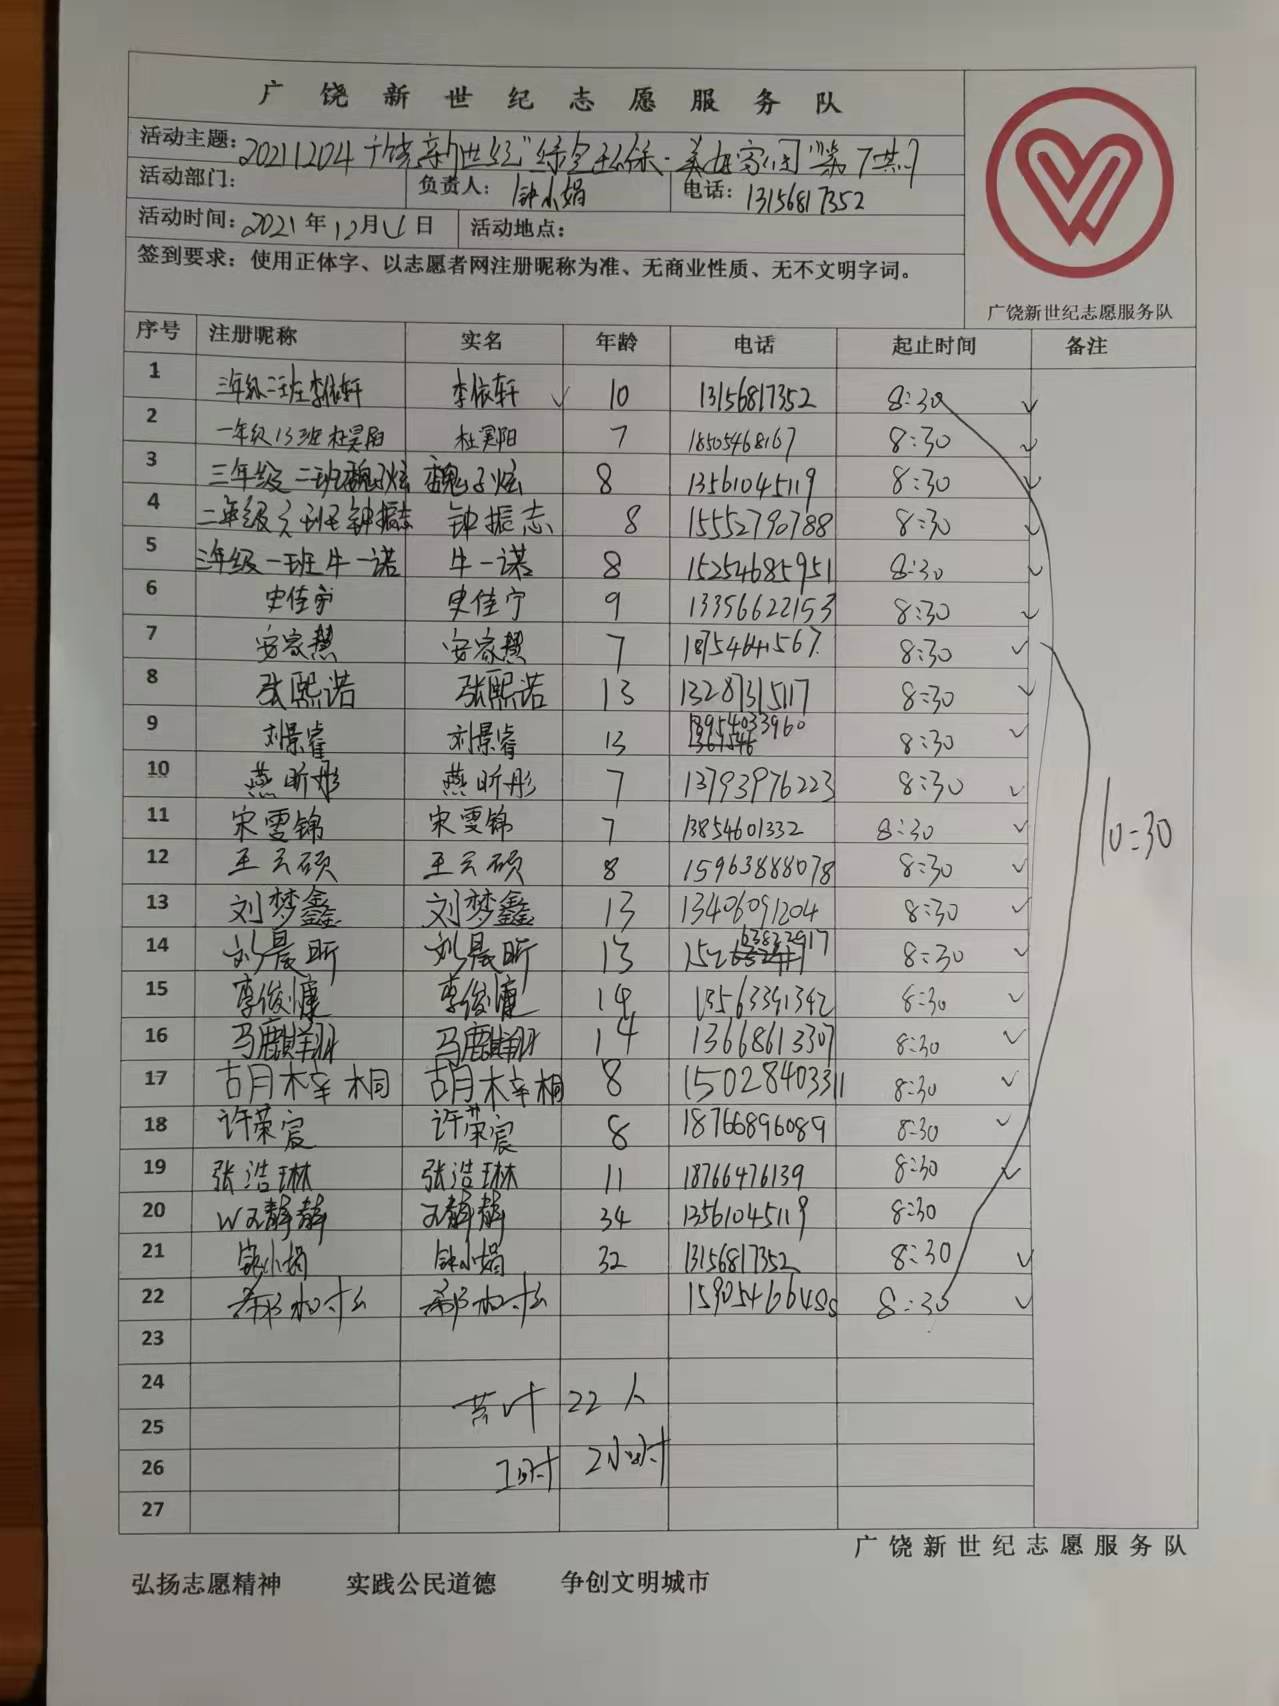 广饶新世纪志愿服务队
活动主题: 20211204广饶新世纪"绿色环保·美好家园"第7期
活动部门: 负责人: 钟小娟 电话: 13156817352
活动时间: 2021年12月4日 活动地点:
签到要求: 使用正体字、以志愿者网注册昵称为准、无商业性质、无不文明字词。
广饶新世纪志愿服务队
序号 注册昵称 实名 年龄 电话 起止时间 备注
1 三年级二班李依轩 李依轩 ✓ 10 13156817352 8:30 ✓
2 一年级13班杜昊阳 杜昊阳 7 18505468167 8:30 ✓
3 三年级二班魏子炫 魏子炫 8 13561045119 8:30 ✓
4 二年级 班钟振志 钟振志 8 15552790788 8:30 ✓
5 三年级一班牛一诺 牛一诺 8 15254685951 8:30 ✓
6 史佳宁 史佳宁 9 13356622153 8:30 ✓
7 安家慧 安家慧 7 18754641567 8:30 ✓
8 张熙诺 张熙诺 13 13287315117 8:30 ✓
9 刘景睿 刘景睿 13 13954033960 8:30 ✓
10 燕昕彤 燕昕彤 7 13793976223 8:30 ✓
11 宋雯锦 宋雯锦 7 13854601332 8:30 ✓
10:30
12 王云硕 王云硕 8 15963888078 8:30 ✓
13 刘梦鑫 刘梦鑫 13 13406091204 8:30 ✓
14 刘晨昕 刘晨昕 13 8:30 ✓
15 李俊慷 李俊慷 14 13563391342 8:30 ✓
16 马麒翔 马麒翔 14 13668613307 8:30 ✓
17 胡梓桐 胡梓桐 8 15028403311 8:30 ✓
18 许荣宸 许荣宸 8 18766896089 8:30 ✓
19 张浩琳 张浩琳 11 18766476139 8:30 ✓
20 W王静静 王静静 34 13561045119 8:30
21 钟小娟 钟小娟 32 13156817352 8:30 ✓
22 8:30 ✓
23
24 共计 22人
25
26 工时 2小时
27
广饶新世纪志愿服务队
弘扬志愿精神 实践公民道德 争创文明城市